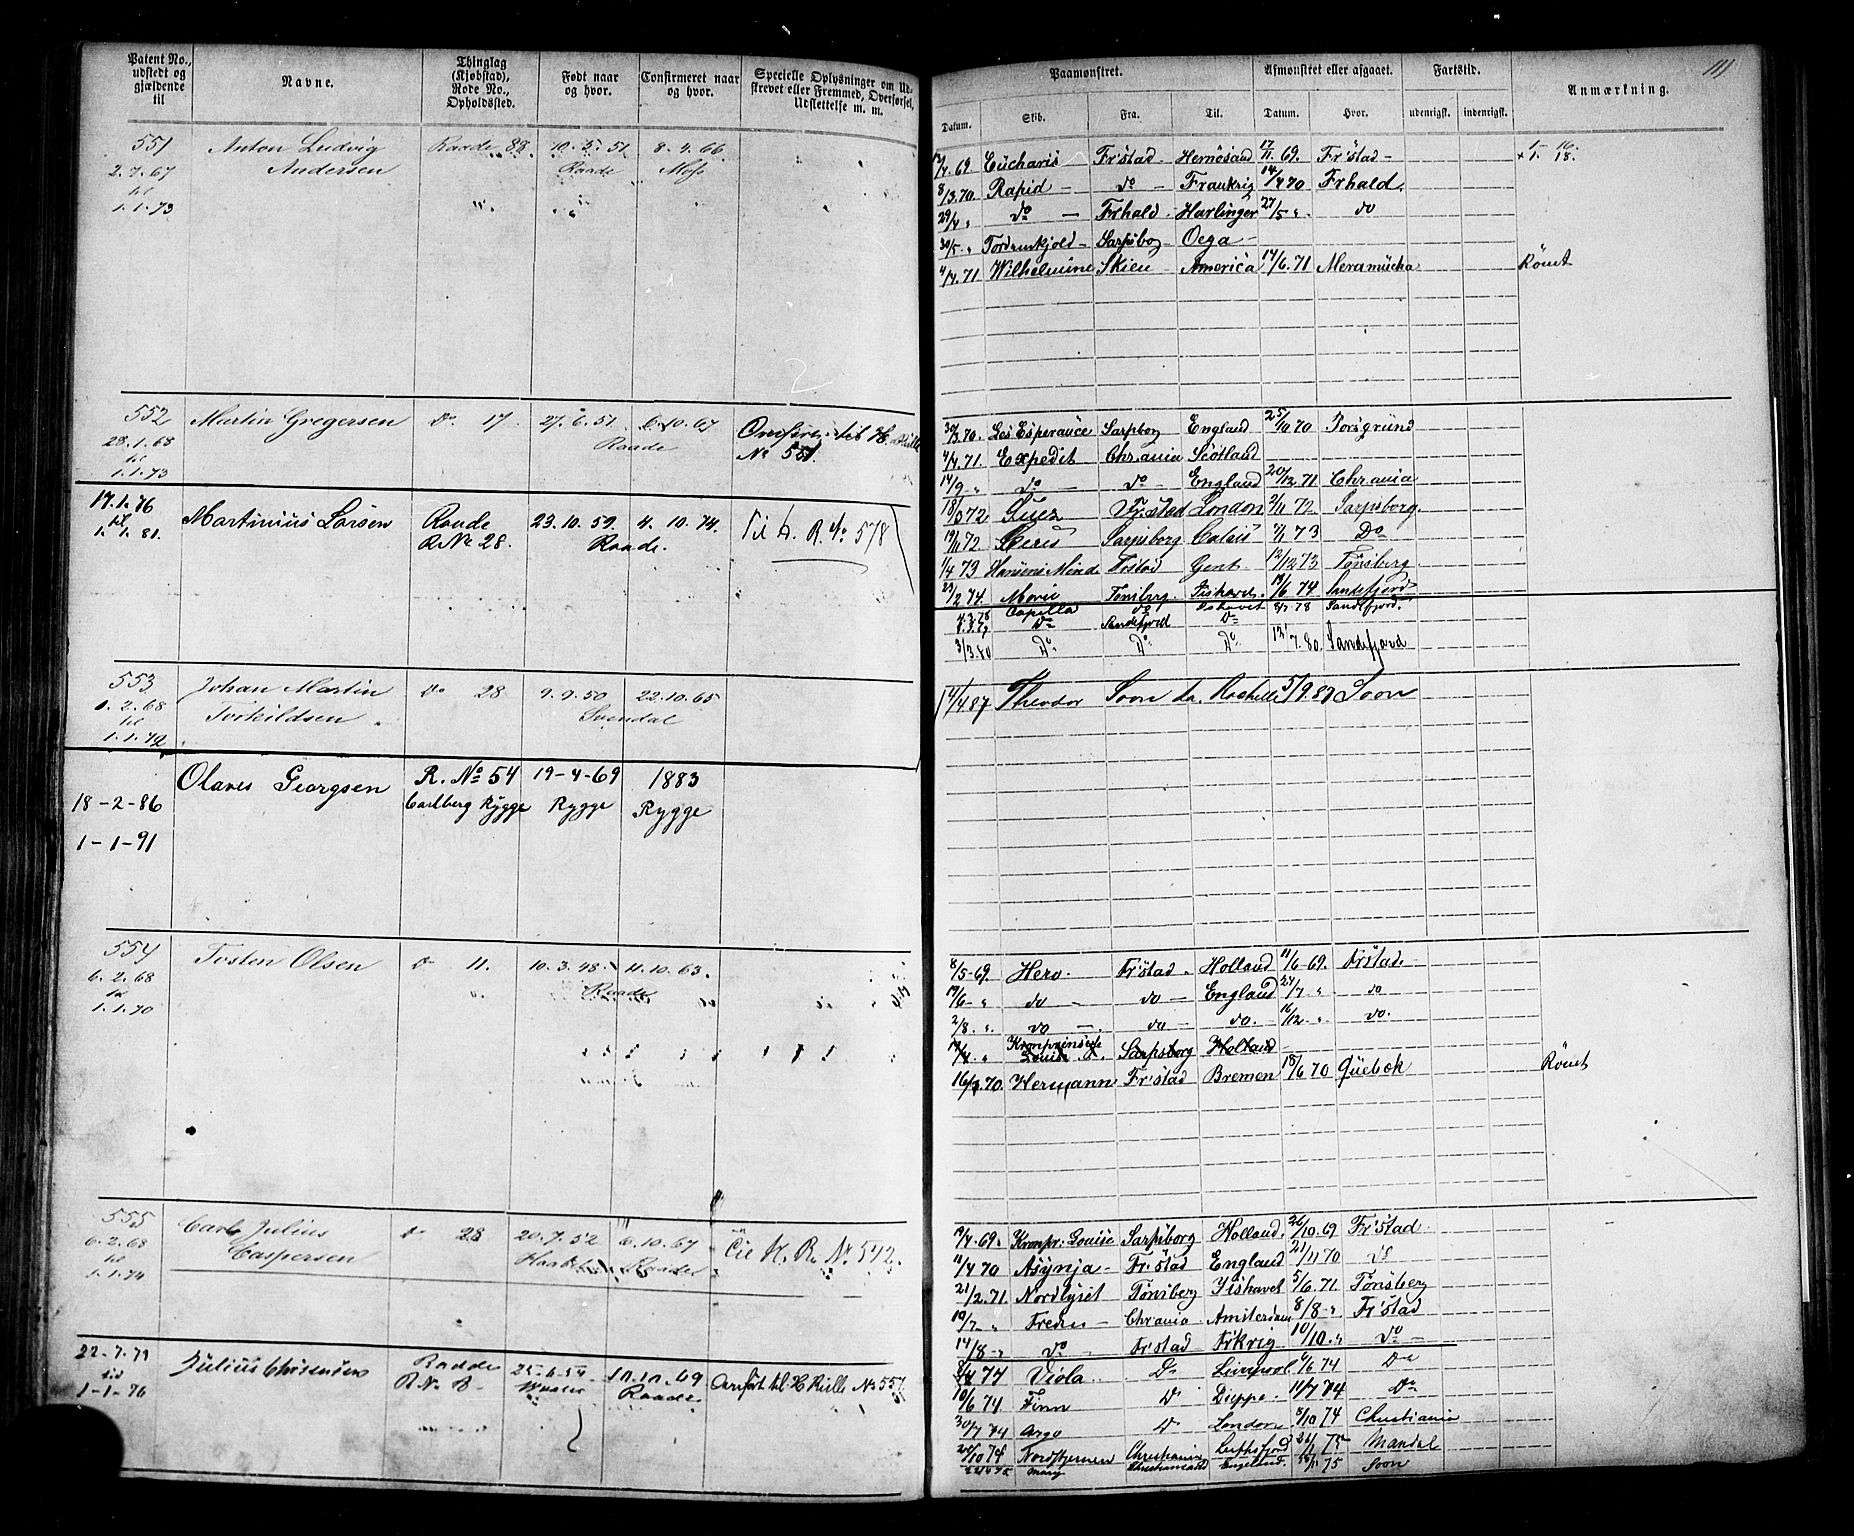 Patent No., udstedt og gjældende til
Navne.
Thinglag (Kjøbstad), Rode No., Opholdssted.
Født naar og hvor.
Confirmeret naar og hvor.
Specielle Oplysninger om Udskrevet eller Fremmed, Overførsel, Udslettelse m. m.
551 Anton Ludvig Raade 88 10.5.51 8.4.66
2.7.67 Andersen Raade Moss
til
1.1.73
552 Martin Gregersen Do 17 27.6.51 6.10.67 Overføres til H. Rulle
28.1.68 Raade No 551.
til
1.1.73
17.1.76 Martinius Larsen Raade 23.10.59. 4.10.74. Til H. R. No 578
til R No 28. Raade.
1.1.81.
553 Johan Martin Do 28 9.9.50 22.10.65
1.2.68 Torkildsen Svendal
til
1.1.72
Olaves Georgsen R. No 54 19-4-69 1883
18-2-86 Carlberg Rygge Rygge Rygge
1-1-91
554 Tosten Olsen Do 11. 10.3.48 11.10.63.
6.2.68 Raade
til
1.1.70
555 Carl Julius Do 28 20.7.52 6.10.67 Til H. R. No 542.
6.2.68 Caspersen Raade
til
1.1.74
22-7-71 Julius Christensen Raade 25-6-54 10.10.69 Overført til H Rulle No 557
til R No 8 Raade
1-1-76
111
Paamønstret. Afmønstret eller afgaaet. Fartstid. Anmærkning.
Datum. Skib. Fra. Til. Datum. Hvor. udenrigsk. indenrigsk.
12/4.69. Eucharis Fr'stad- Hernøsand 17/11.69. Fr'stad-
8/3.70. Rapid - do - Frankrig 14/4 70 Frhald.
29/4 " do - Frhald. Harlinger 27/5 ". do
30/5. " Tordenskjold- Sarpsbog Oega-
4/4.71 Wilhelmine Skien America 14/6.71 Meramucha Römt
30/3.70. Les Esperance Sarpbog England 25/10 70 Porsgrund
4/4.71. Expedit Chrania Scotland
14/9. " do - do - England 20/12.71 Chrania
18/3 72 Suez Fr.stad London 2/11 72 Sarpsborg.
19/11 72 Ceres Sarpsborg Calais 7/1 73 Do
1/4 73 Hansens Minde Frstad Gent 12/12 73 Tønsberg
23/2 74. Marie Tønsberg. Ishavet. 19/6 74 Sandefjord
4.3.78 Capella do Ishavet 8/7 78 Sandefjord.
Do Sandefjord Do
3/3.80 Do. Do. Do. 13/7.80. Sandefjord
14/4 87 Theodor Soon La Rochelle 5/9.87 Soon
8/5-69. Hero. Fr'stad. Holland 11/6-69. Frstad.
17/6- " do - do - England 27/7 " do
2/8. " do - do - do. 16/12 - " do.
Kronprinsesse Louise Sarpsborg Holland
16/3.70. Hermann Fr'stad Bremen 18/6 70 Quebek Römt
12/4.69. Kronpr: Louise Sarpsborg Holland. 26/10.69 Fr'stad.
11/4 70 Asynja- Fr'stad England 21/11 70 do
21/2.71. Nordlyset Tönsberg Ishavet 5/6.71. Tönsberg
10/7 " Fredes - Chrania Amsterdam 8/8 " Fr'stad
14/8 " do. Fr'stad Frkrig 10/10. " do -
8/4 74 Viola. Do Liverpool 6/6 74 Do
10/6 74. Finn Do Dieppe. 11/7 74 Do
30/7 74 Argo Do London 8/10 74 Christiania
20/10 74 Nordstjernen Christiania 26/1 75 Mandal
Mary Christiansand England. 75 Soon